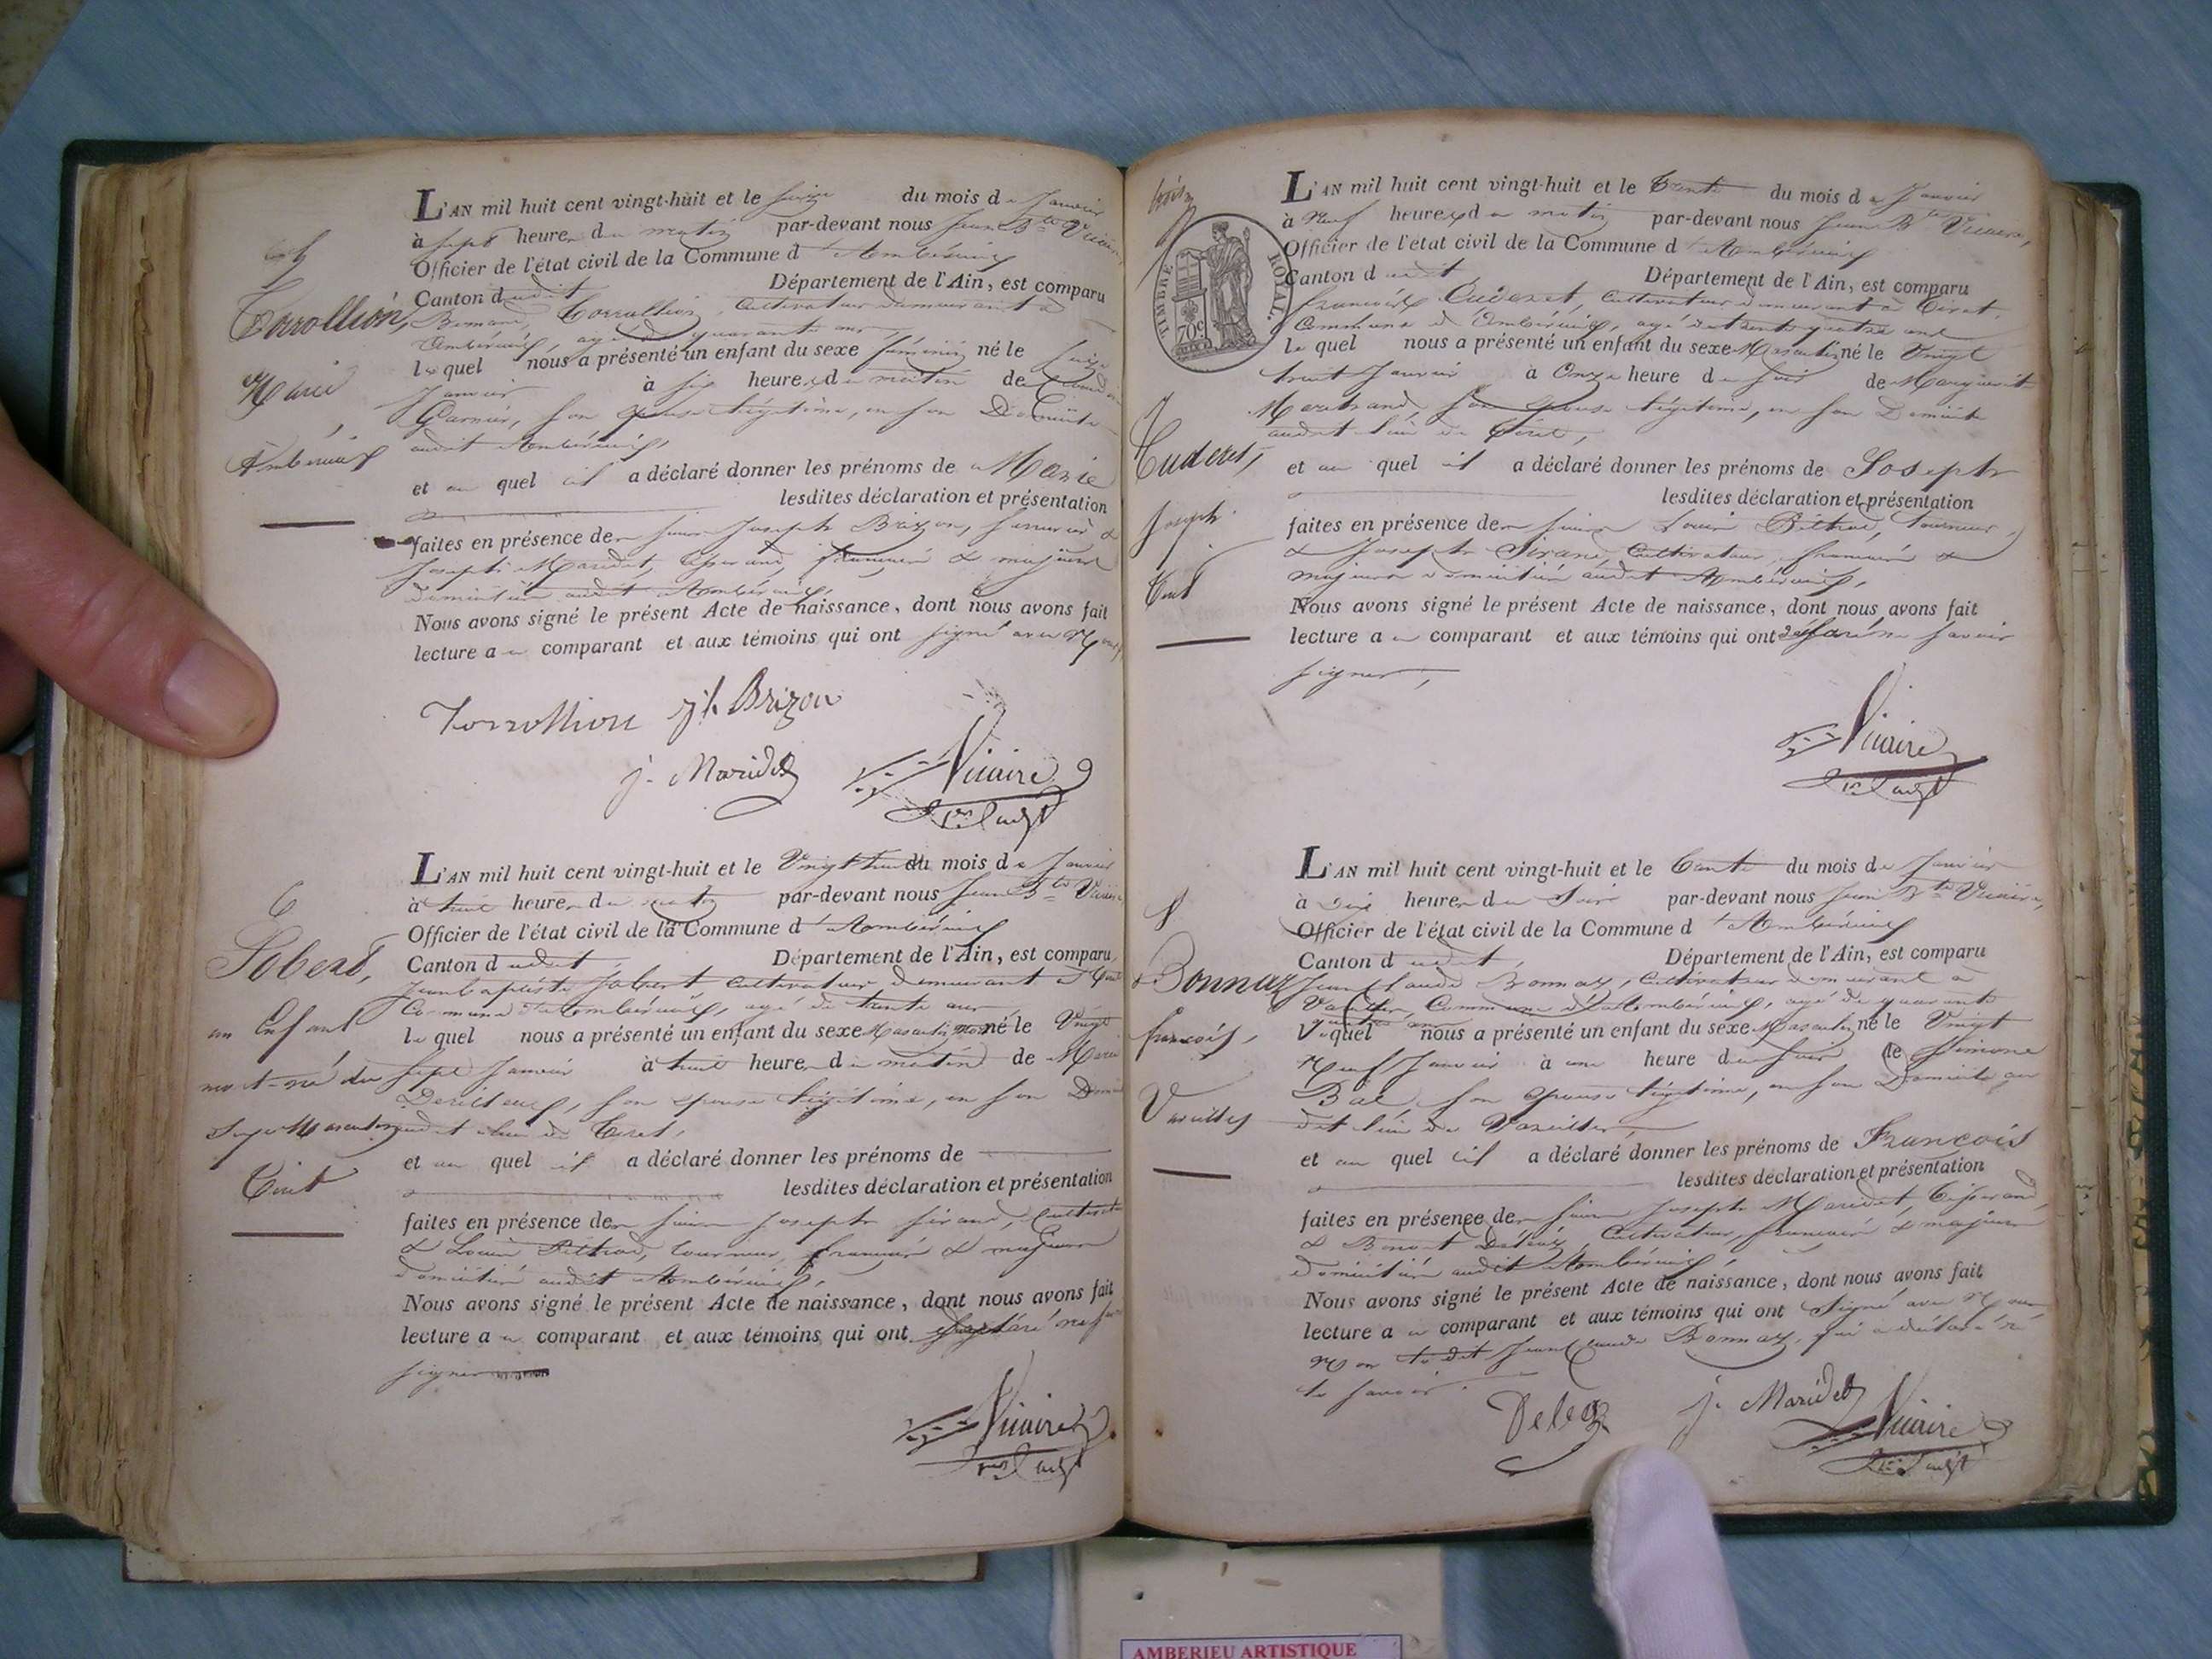 5
Torrollion,
Marie
Ambérieux
L'AN mil huit cent vingt-huit et le seize du mois de Janvier
à sept heures du matin par-devant nous Jean Bte Vicaire,
Officier de l'état civil de la Commune d'Ambérieux
Canton dudit Département de l'Ain, est comparu
Torrollion, Cultivateur demeurant à
Ambérieux, agé de quarante ans
lequel nous a présenté un enfant du sexe féminin né le seize
Janvier à six heures du matin de
Garnier, son épouse légitime, en son Domicile
audit Ambérieux,
et au quel il a déclaré donner les prénoms de Marie
lesdites déclaration et présentation
faites en présence des sieurs Joseph Brizon, serrurier &
Joseph Maridet, tisserand, français & majeurs
domiciliés audit Ambérieux,
Nous avons signé le présent Acte de naissance, dont nous avons fait
lecture au comparant et aux témoins qui ont signé avec Nous,
Torrollion jh Brizon
j. Maridet Vicaire
6
Jobert,
un Enfant
mort-né du
Sexe Masculin
Tiret
L'AN mil huit cent vingt-huit et le Vingt huit du mois de Janvier
à huit heures du matin par-devant nous Jean Bte Vicaire,
Officier de l'état civil de la Commune d'Ambérieux
Canton dudit, Département de l'Ain, est comparu
Jean baptiste Jobert Cultivateur, demeurant à
Commune d'Ambérieux, agé de trente ans
lequel nous a présenté un enfant du sexe Masculin mort né le Vingt
sept Janvier à huit heures du matin de Marie
son épouse légitime, en son
audit lieu de Tiret,
et au quel il a déclaré donner les prénoms de
lesdites déclaration et présentation
faites en présence des sieurs Joseph Sirand, Cultivateur
& Louis Beltrad, tourneur, français & majeurs
domiciliés audit Ambérieux,
Nous avons signé le présent Acte de naissance, dont nous avons fait
lecture au comparant et aux témoins qui ont déclaré ne savoir
signer
Vicaire
TIMBRE ROYAL.
70c
Cuderet,
Joseph
Tiret
L'AN mil huit cent vingt-huit et le Trente du mois de Janvier
à Neuf heures du matin par-devant nous Jean Bte Vicaire,
Officier de l'état civil de la Commune d'Ambérieux
Canton dudit Département de l'Ain, est comparu
François Cuderet, Cultivateur demeurant à Tiret,
Commune d'Ambérieux, agé de trente quatre ans
lequel nous a présenté un enfant du sexe Masculin né le Vingt
huit Janvier à Onze heure du soir de Marguerite
son épouse légitime, en son Domicile
audit lieu de Tiret,
et au quel il a déclaré donner les prénoms de Joseph
lesdites déclaration et présentation
faites en présence des sieurs Louis Beltrad, tourneur,
& Joseph Sirand, Cultivateur, français &
majeurs domiciliés audit Ambérieux,
Nous avons signé le présent Acte de naissance, dont nous avons fait
lecture au comparant et aux témoins qui ont déclaré ne savoir
signer,
Vicaire
8
Bonnaz
françois,
Vareilles
L'AN mil huit cent vingt-huit et le Trente du mois de Janvier
à six heures du Soir par-devant nous Jean Bte Vicaire,
Officier de l'état civil de la Commune d'Ambérieux
Canton dudit, Département de l'Ain, est comparu
Jean Claude Bonnaz, Cultivateur demeurant à
Vareilles, Commune d'Ambérieux, agé de quarante
quatre ans
lequel nous a présenté un enfant du sexe Masculin né le Vingt
Neuf Janvier à une heure du soir de Simone
son épouse légitime, en son Domicile au
dit lieu de Vareilles,
et au quel il a déclaré donner les prénoms de François
lesdites déclaration et présentation
faites en présence des sieurs Joseph Maridet, tisserand,
& Benoit Cultivateur, français & majeurs
domiciliés audit Ambérieux,
Nous avons signé le présent Acte de naissance, dont nous avons fait
lecture au comparant et aux témoins qui ont Signé avec Nous
Non le dit Jean Claude Bonnaz, qui a déclaré ne
le savoir.
j. Maridet Vicaire
AMBERIEU ARTISTIQUE